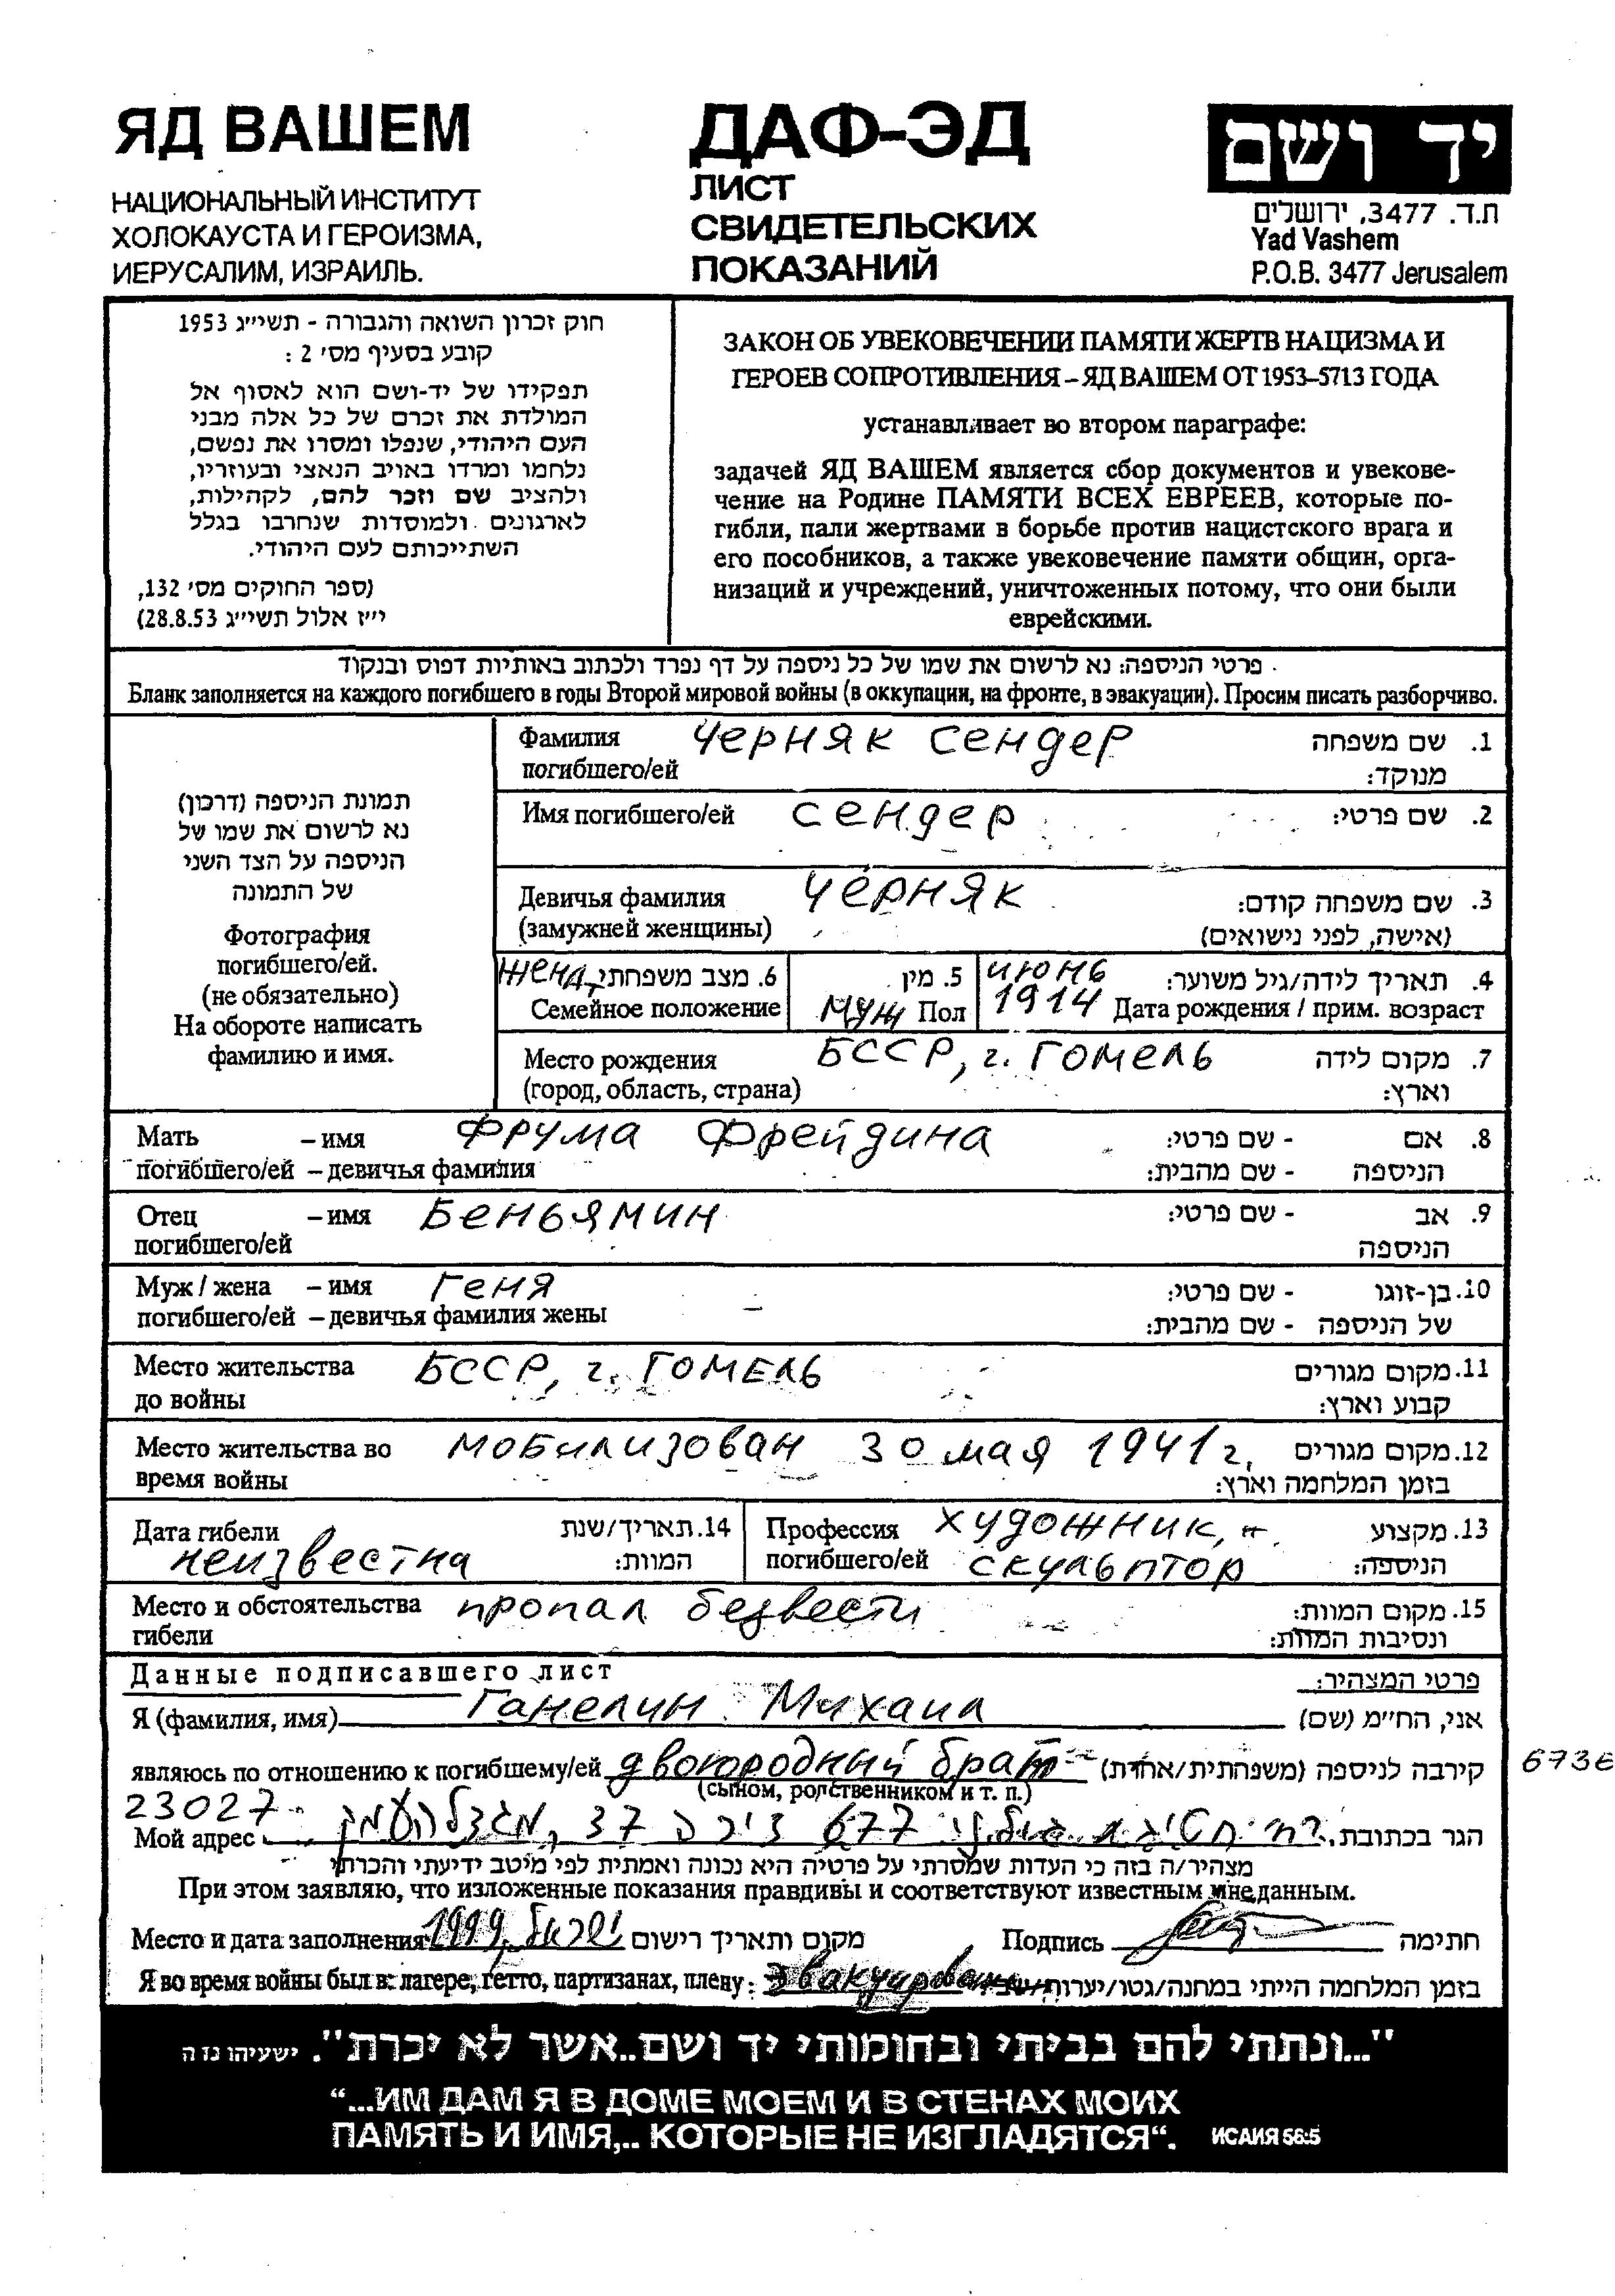 ЯД ВАШЕМ
НАЦИОНАЛЬНЫЙ ИНСТИТУТ
ХОЛОКАУСТА И ГЕРОИЗМА,
ИЕРУСАЛИМ, ИЗРАИЛЬ.
ДАФ-ЭД
ЛИСТ
СВИДЕТЕЛЬСКИХ
ПОКАЗАНИЙ
יד ושם
ת.ד. 3477, ירושלים
Yad Vashem
P.O.B. 3477 Jerusalem
חוק זכרון השואה והגבורה - תשי״ג 1953
קובע בסעיף מס׳ 2 :
תפקידו של יד-ושם הוא לאסוף אל
המולדת את זכרם של כל אלה מבני
העם היהודי, שנפלו ומסרו את נפשם,
נלחמו ומרדו באויב הנאצי ובעוזריו,
ולהציב שם וזכר להם, לקהילות,
לארגונים ולמוסדות שנחרבו בגלל
השתייכותם לעם היהודי.
(ספר החוקים מס׳ 132,
י״ז אלול תשי״ג 28.8.53)
ЗАКОН ОБ УВЕКОВЕЧЕНИИ ПАМЯТИ ЖЕРТВ НАЦИЗМА И
ГЕРОЕВ СОПРОТИВЛЕНИЯ – ЯД ВАШЕМ ОТ 1953–5713 ГОДА
устанавливает во втором параграфе:
задачей ЯД ВАШЕМ является сбор документов и увекове-
чение на Родине ПАМЯТИ ВСЕХ ЕВРЕЕВ, которые по-
гибли, пали жертвами в борьбе против нацистского врага и
его пособников, а также увековечение памяти общин, орга-
низаций и учреждений, уничтоженных потому, что они были
еврейскими.
פרטי הניספה: נא לרשום את שמו של כל ניספה על דף נפרד ולכתוב באותיות דפוס ובנקוד
Бланк заполняется на каждого погибшего в годы Второй мировой войны (в оккупации, на фронте, в эвакуации). Просим писать разборчиво.
תמונת הניספה (דרכון)
נא לרשום את שמו של
הניספה על הצד השני
של התמונה
Фотография
погибшего/ей.
(не обязательно)
На обороте написать
фамилию и имя.
Фамилия Черняк Сендер 1. שם משפחה
погибшего/ей מנוקד:
Имя погибшего/ей Сендер 2. שם פרטי:
Девичья фамилия Черняк 3. שם משפחה קודם:
(замужней женщины) (אישה, לפני נישואים)
6. מצב משפחתי 5. מין июнь 4. תאריך לידה/גיל משוער:
Семейное положение муж Пол 1914 Дата рождения / прим. возраст
Место рождения БССР, г. Гомель 7. מקום לידה
(город, область, страна) וארץ:
Мать – имя Фрума Фрейдина 8. אם - שם פרטי:
погибшего/ей – девичья фамилия הניספה - שם מהבית:
Отец – имя Беньямин 9. אב - שם פרטי:
погибшего/ей הניספה
Муж / жена – имя Геня 10. בן-זוגו - שם פרטי:
погибшего/ей – девичья фамилия жены – של הניספה - שם מהבית:
Место жительства БССР, г. Гомель 11. מקום מגורים
до войны קבוע וארץ:
Место жительства во мобилизован 30 мая 1941 г. 12. מקום מגורים
время войны בזמן המלחמה וארץ:
Дата гибели 14. תאריך/שנת Профессия художник, 13. מקצוע
неизвестна המוות: погибшего/ей скульптор הניספה:
Место и обстоятельства пропал безвести 15. מקום המוות:
гибели ונסיבות המוות:
Данные подписавшего лист פרטי המצהיר:
Я (фамилия, имя) Ганелин Михаил אני, הח״מ (שם)
являюсь по отношению к погибшему/ей двоюродный брат קירבה לניספה (משפחתית/אחרת)
(сыном, родственником и т. п.)
23027
Мой адрес 677 דירה 37, מגדל העמק הגר בכתובת
מצהיר/ה בזה כי העדות שמסרתי על פרטיה היא נכונה ואמתית לפי מיטב ידיעתי והכרתי
При этом заявляю, что изложенные показания правдивы и соответствуют известным мне данным.
Место и дата заполнения 1999, ישראל מקום ותאריך רישום Подпись חתימה
Я во время войны был в: лагере, гетто, партизанах, плену: Эвакуирован בזמן המלחמה הייתי במחנה/גטו/יערות
"...ונתתי להם בביתי ובחומותי יד ושם..אשר לא יכרת". ישעיהו נו ה
“...ИМ ДАМ Я В ДОМЕ МОЕМ И В СТЕНАХ МОИХ
ПАМЯТЬ И ИМЯ,.. КОТОРЫЕ НЕ ИЗГЛАДЯТСЯ“. ИСАИЯ 56:5